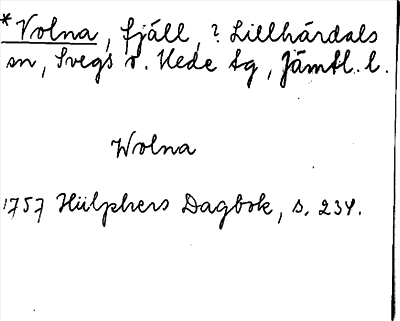 *Volna, fjäll, ? Lillhärdals
sn, Svegs o. Hede tg, Jämtl. l.
Wolna
1757 Hülphers Dagbok, s. 234.